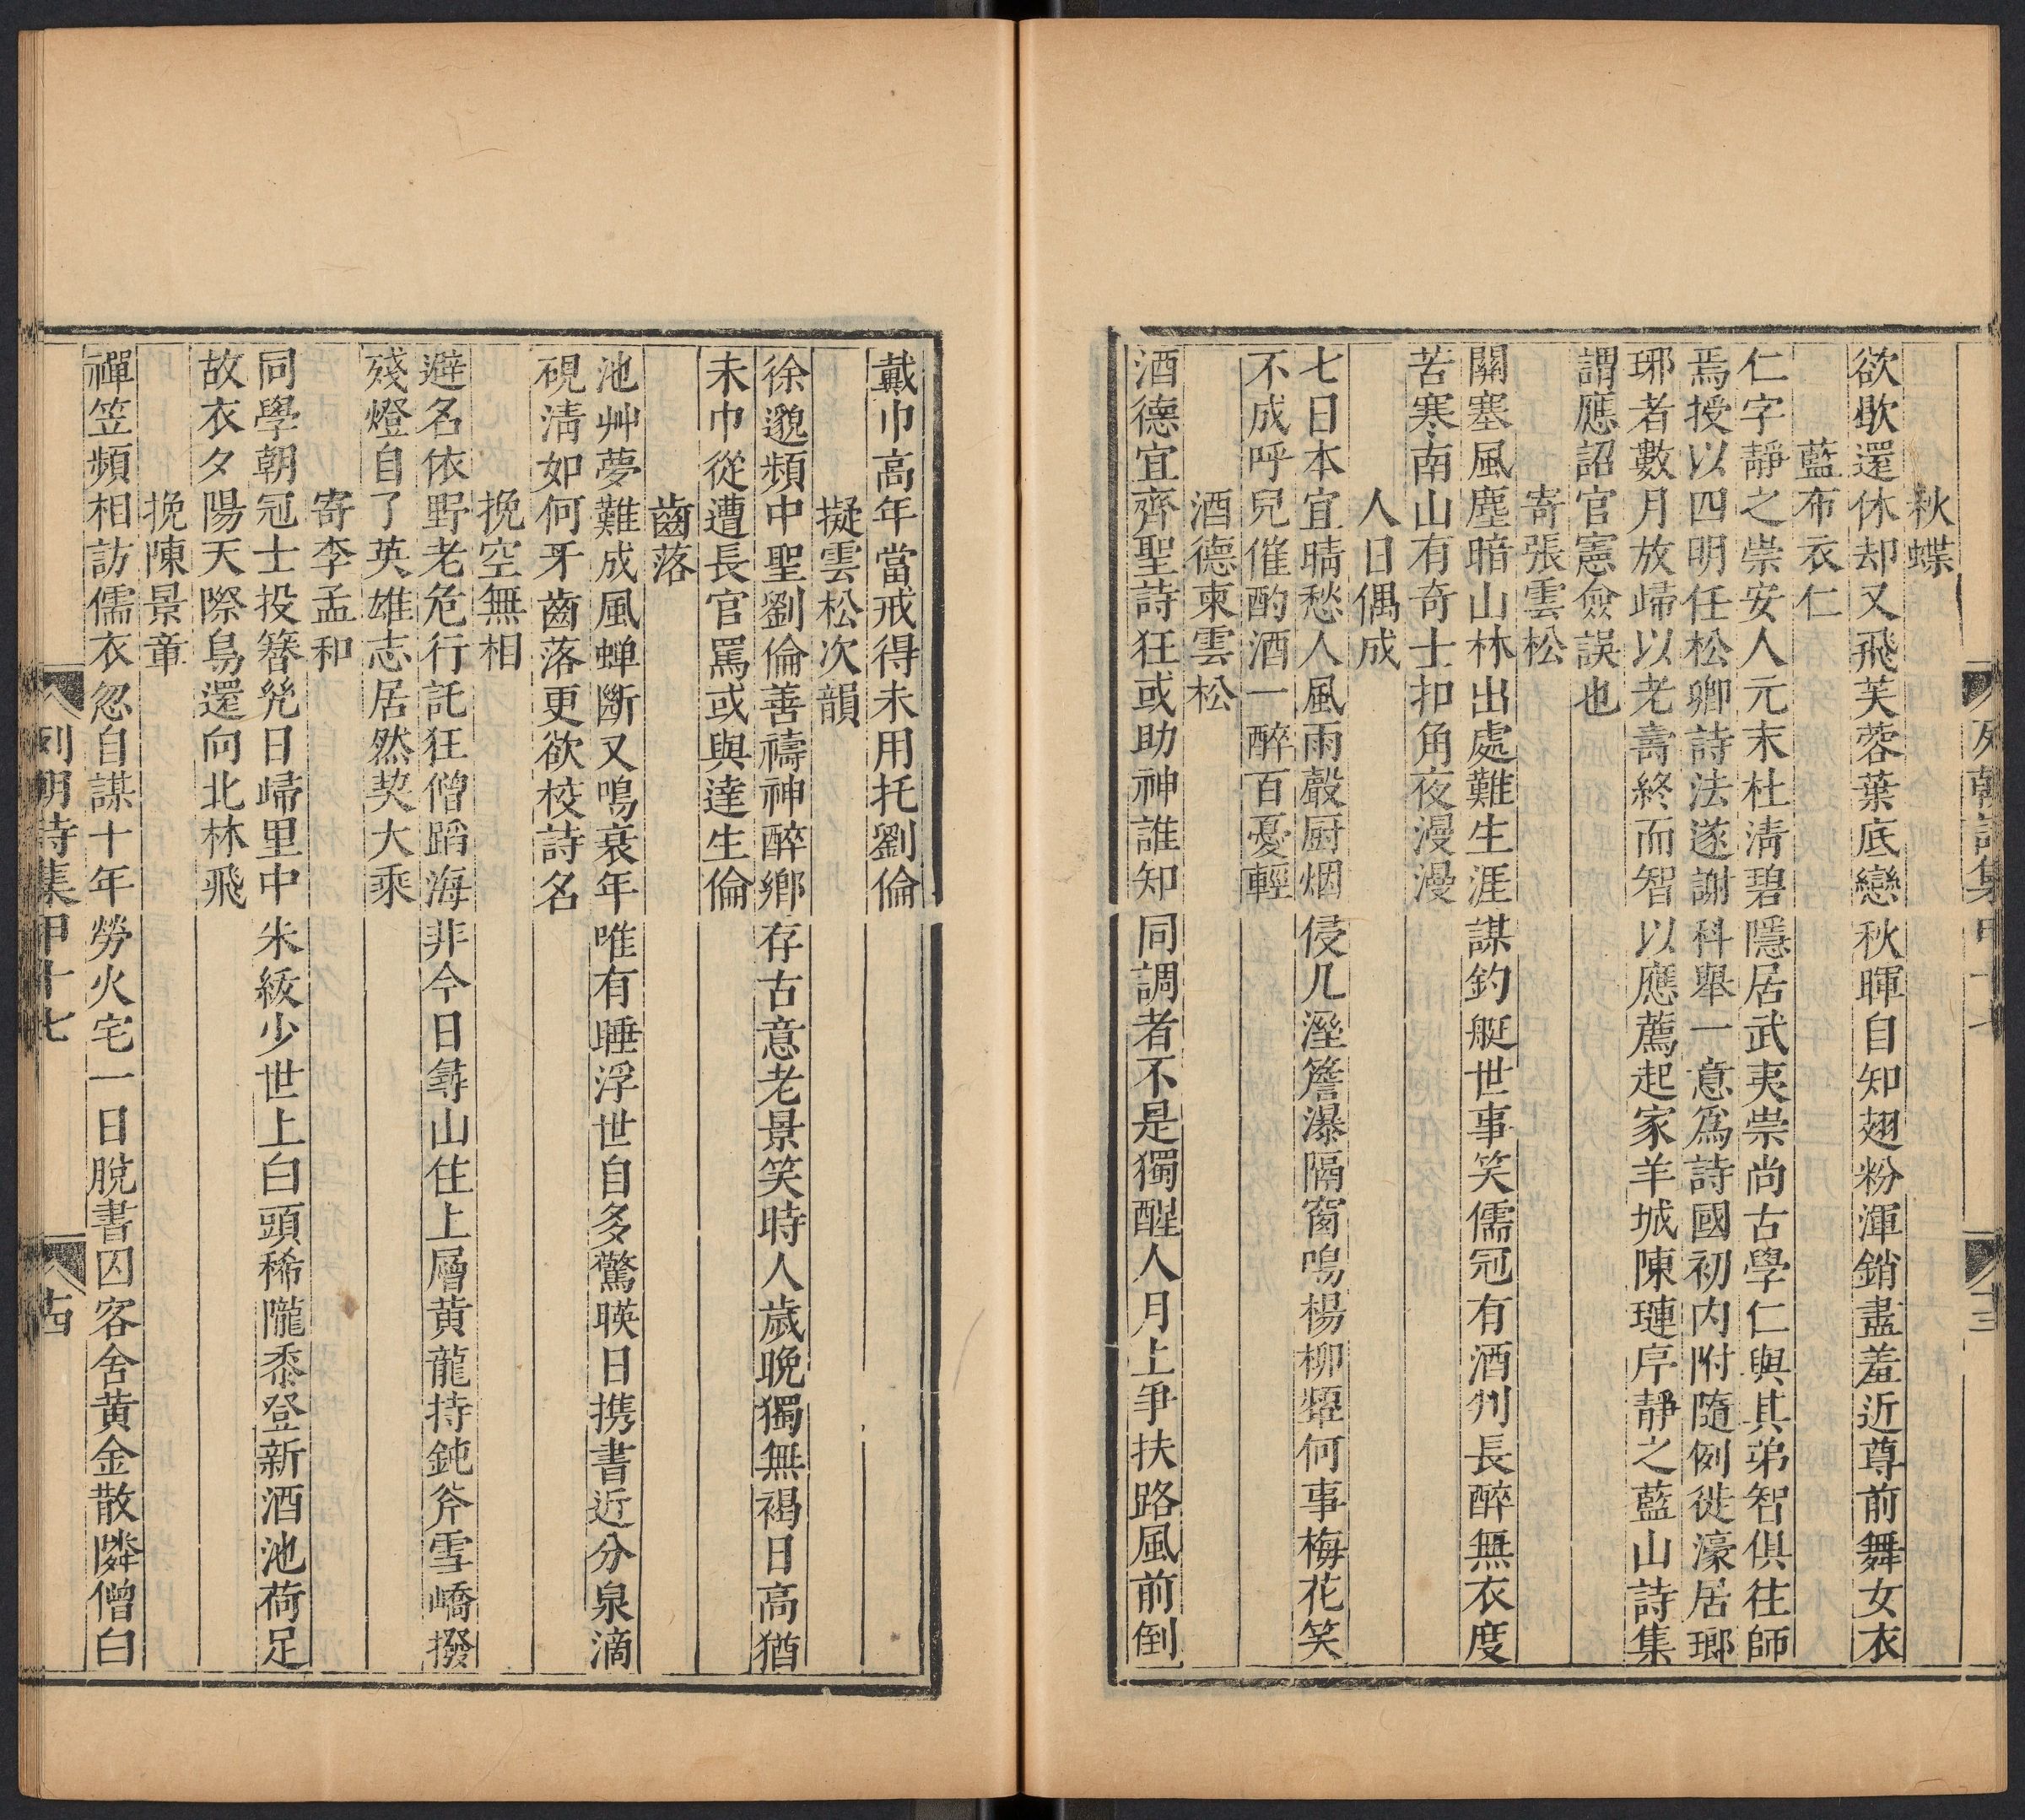 列朝詩集甲十七
十三
秋蝶
欲歇還休却又飛芙蓉葉底戀秋暉自知翅粉渾銷盡羞近尊前舞女衣
藍布衣仁
仁字靜之崇安人元末杜清碧隱居武夷崇尚古學仁與其弟智俱往師
焉授以四明任松卿詩法遂謝科舉一意爲詩國初内附隨例徙濠居瑯
琊者數月放歸以老壽終而智以應薦起家羊城陳璉序靜之藍山詩集
謂應詔官憲僉誤也
寄張雲松
關塞風塵暗山林出處難生涯謀釣艇世事笑儒冠有酒州長醉無衣度
苦寒南山有奇士扣角夜漫漫
人日偶成
七日本宜晴愁人風雨聲厨烟侵几溼簷瀑隔窗鳴楊柳顰何事梅花笑
不成呼兒催酌酒一醉百憂輕
酒德柬雲松
酒德宜齊聖詩狂或助神誰知同調者不是獨醒人月上爭扶路風前倒
戴巾高年當戒得未用托劉倫
擬雲松次韻
徐邈頻中聖劉倫善禱神醉鄉存古意老景笑時人歲晚獨無褐日高猶
未巾從遭長官罵或與達生倫
齒落
池艸夢難成風蟬斷又鳴衰年唯有睡浮世自多驚暎日携書近分泉滴
硯清如何牙齒落更欲校詩名
挽空無相
避名依野老危行託狂僧蹈海非今日尋山住上層黄龍持鈍斧雪嶠撥
殘燈自了英雄志居然契大乘
寄李孟和
同學朝冠士投簪㡬日歸里中朱紱少世上白頭稀隴黍登新酒池荷足
故衣夕陽天際鳥還向北林飛
挽陳景章
禪笠頻相訪儒衣忽自謀十年勞火宅一日脫書囚客舍黄金散隣僧白
列朝詩集甲十七
十四